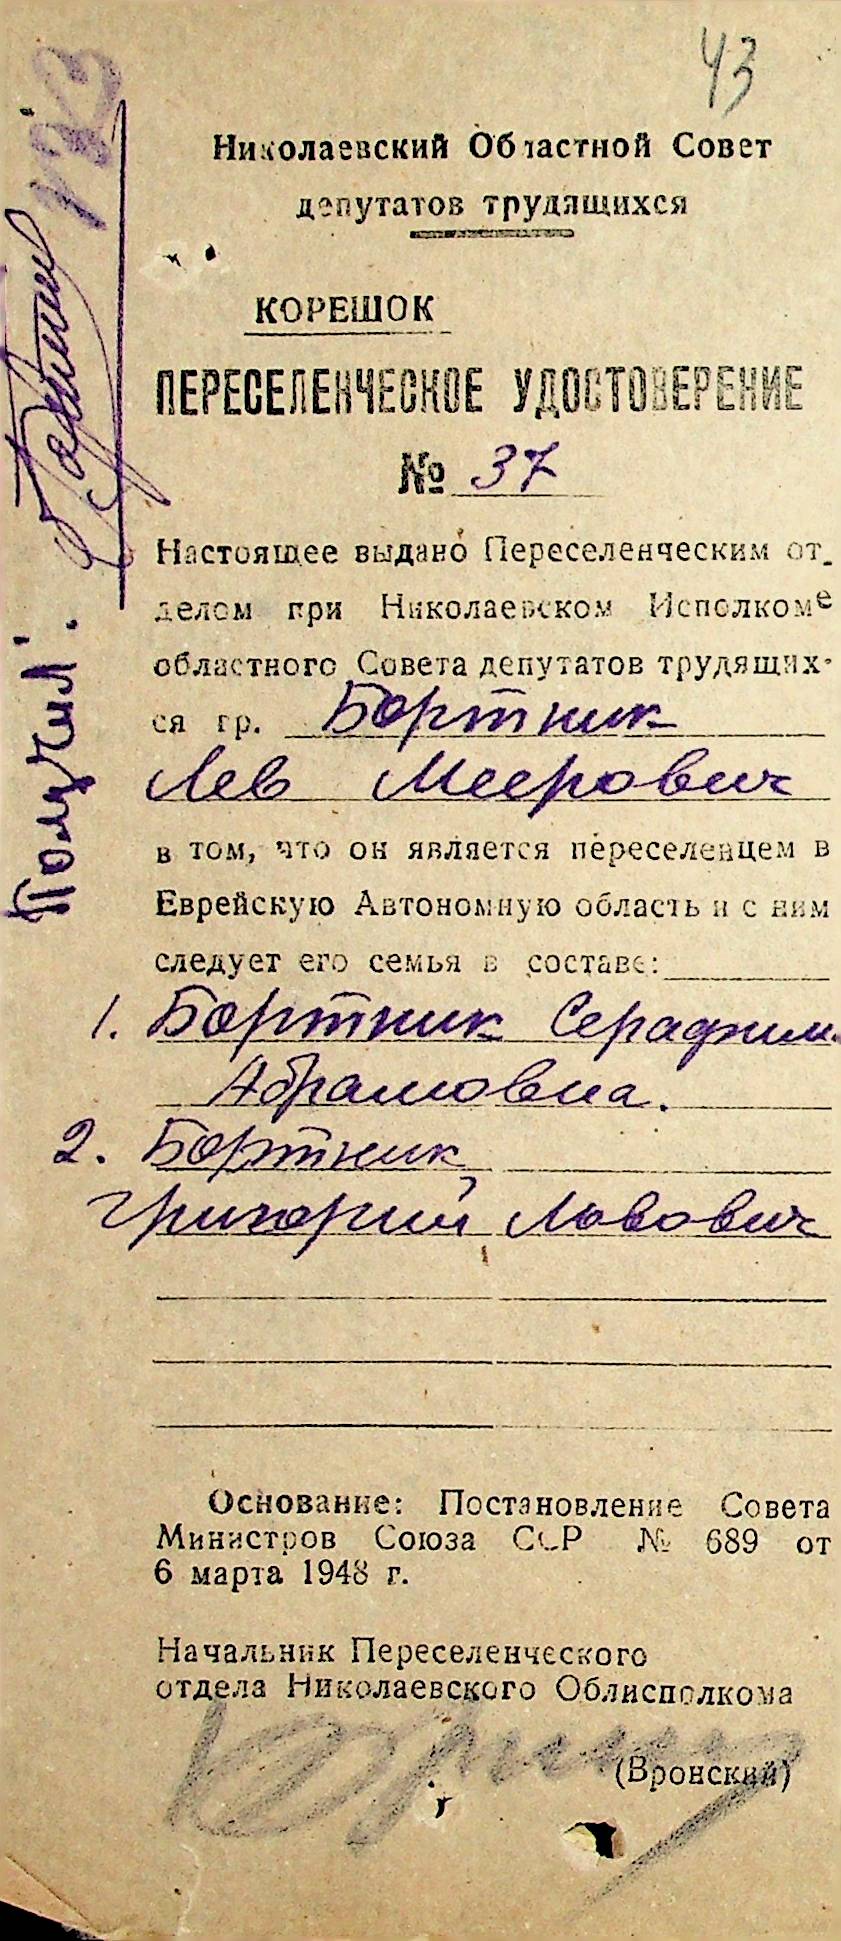 43
Николаевский Областной Совет
депутатов трудящихся
КОРЕШОК
ПЕРЕСЕЛЕНЧЕСКОЕ УДОСТОВЕРЕНИЕ
№ 37
Настоящее выдано Переселенческим от-
делом при Николаевском Исполкоме
областного Совета депутатов трудящих-
ся гр. Бортник
Лев Меерович
в том, что он является переселенцем в
Еврейскую Автономную область и с ним
следует его семья в составе:
1. Бортник Серафим
Абрамовна.
2. Бортник
Григорий Львович
Основание: Постановление Совета
Министров Союза ССР № 689 от
6 марта 1948 г.
Начальник Переселенческого
отдела Николаевского Облисполкома
(Вронский)
Получил.